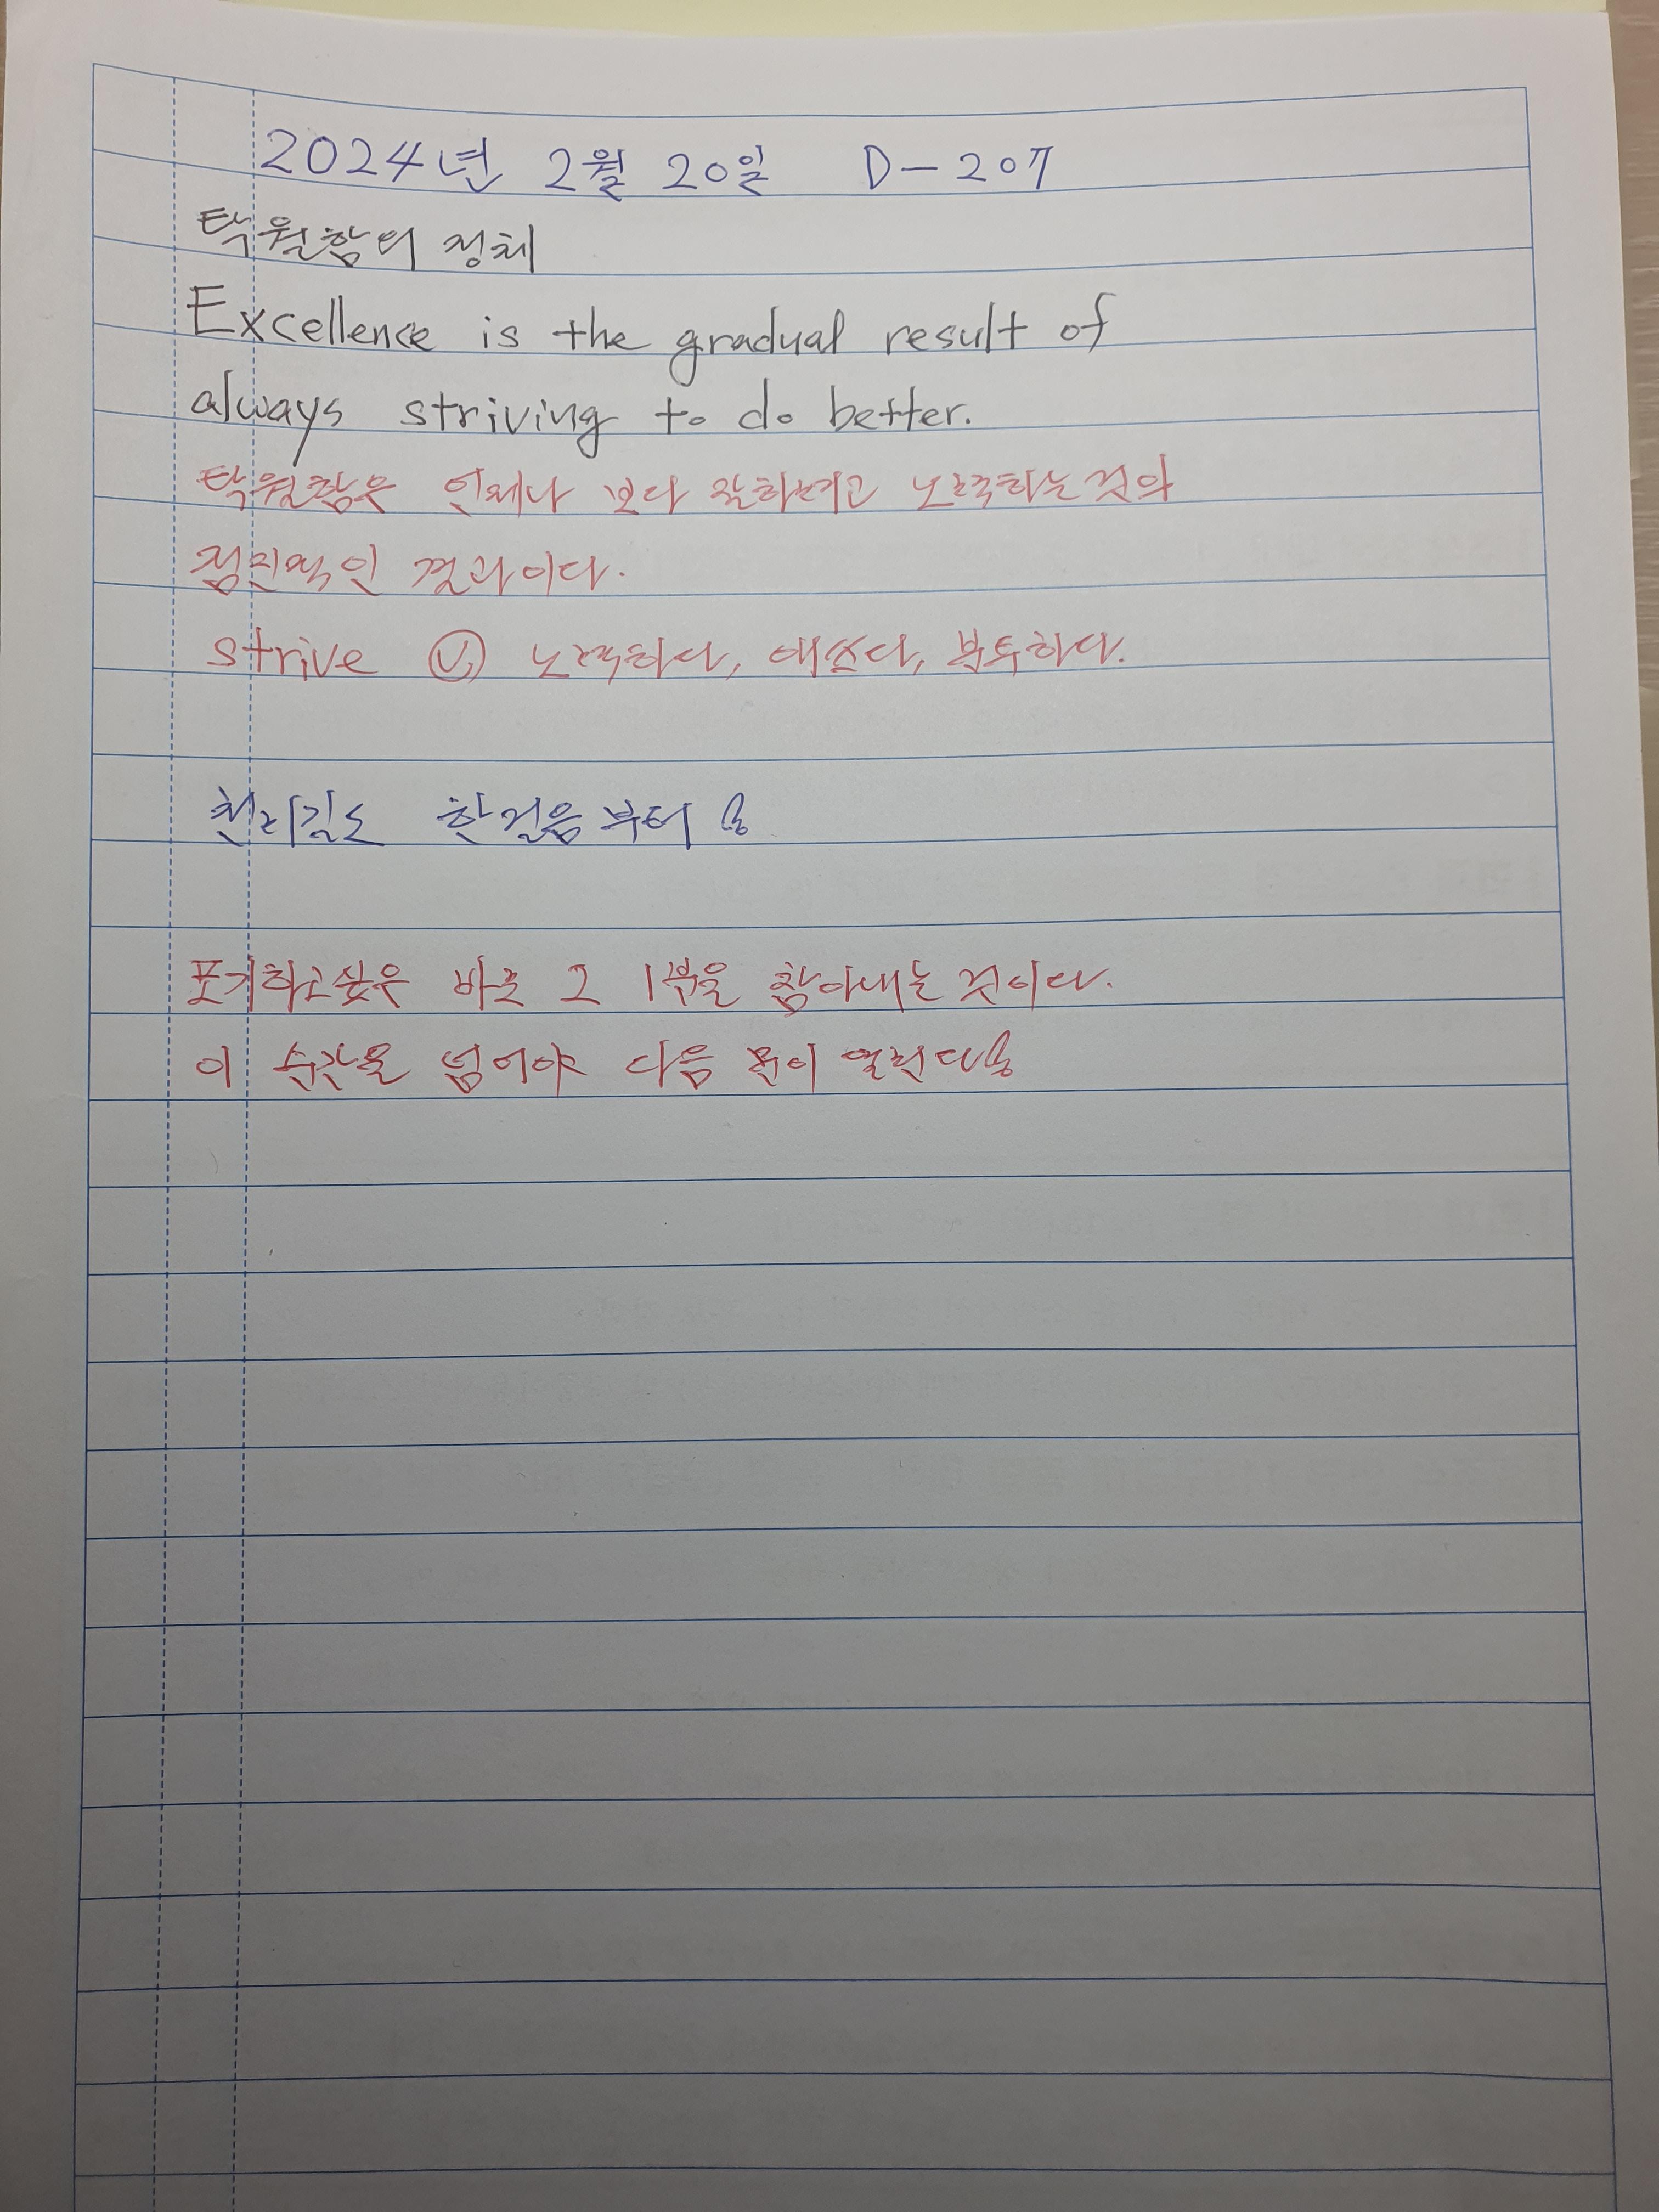 2024년 2월 20일 D-207
탁월함의 정체
Excellence is the gradual result of
always striving to do better.
탁월함은 언제나 보다 잘하려고 노력하는 것의
점진적인 결과이다.
strive ⓥ 노력하다, 애쓰다, 분투하다.
천리길도 한걸음부터!
포기하고싶은 바로 그 1분을 참아내는 것이다.
이 순간을 넘어야 다음 문이 열린다!